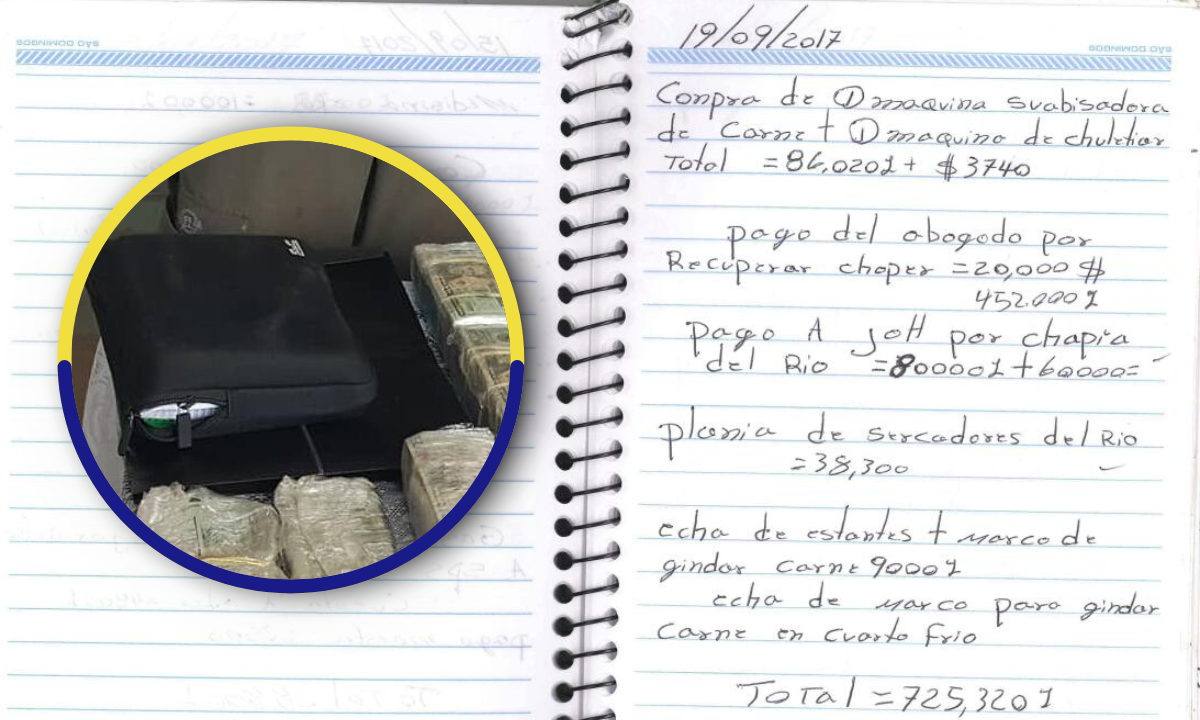 SÃO DOMINGOS
19/09/2017
SÃO DOMINGOS
Compra de ① maquina suabisadora
de Carne + ① maquina de chuletiar
Total = 86,020L + $3740
pago del abogodo por
Recuperar choper = 20,000 $
452.000L
pago A JOH por chapia
del Rio = 80000L + 60000=
plania de sercadores del Rio
= 38,300
echa de estantes + marco de
gindar carne 9000L
echa de marco para gindar
Carne en cuarto frio
Total = 725,320L